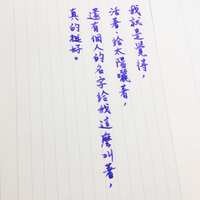 我就是覺得，
活著，給太陽曬著，
還有個人的名字給我這麼叫著，
真的挺好。